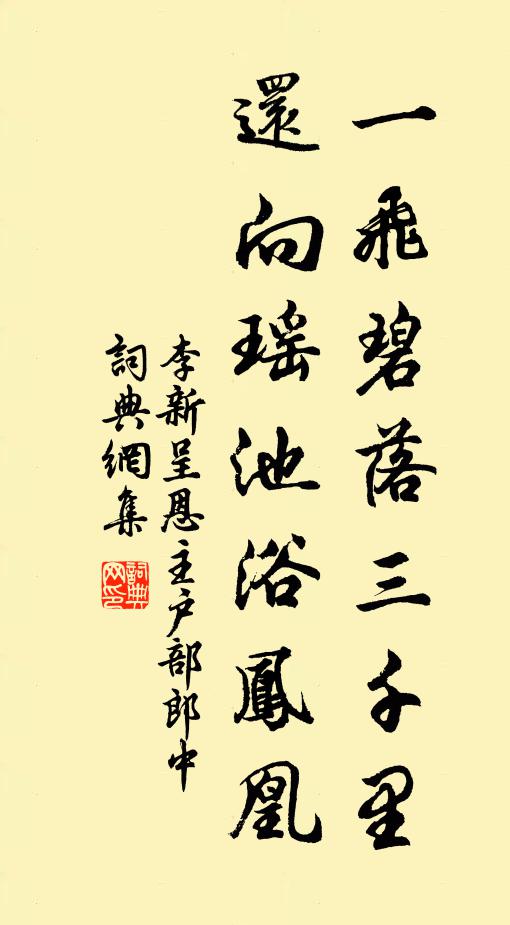 一飛碧落三千里
還向瑶池浴鳳凰
李新呈恩主户部郎中
詞典網集
詞典网印